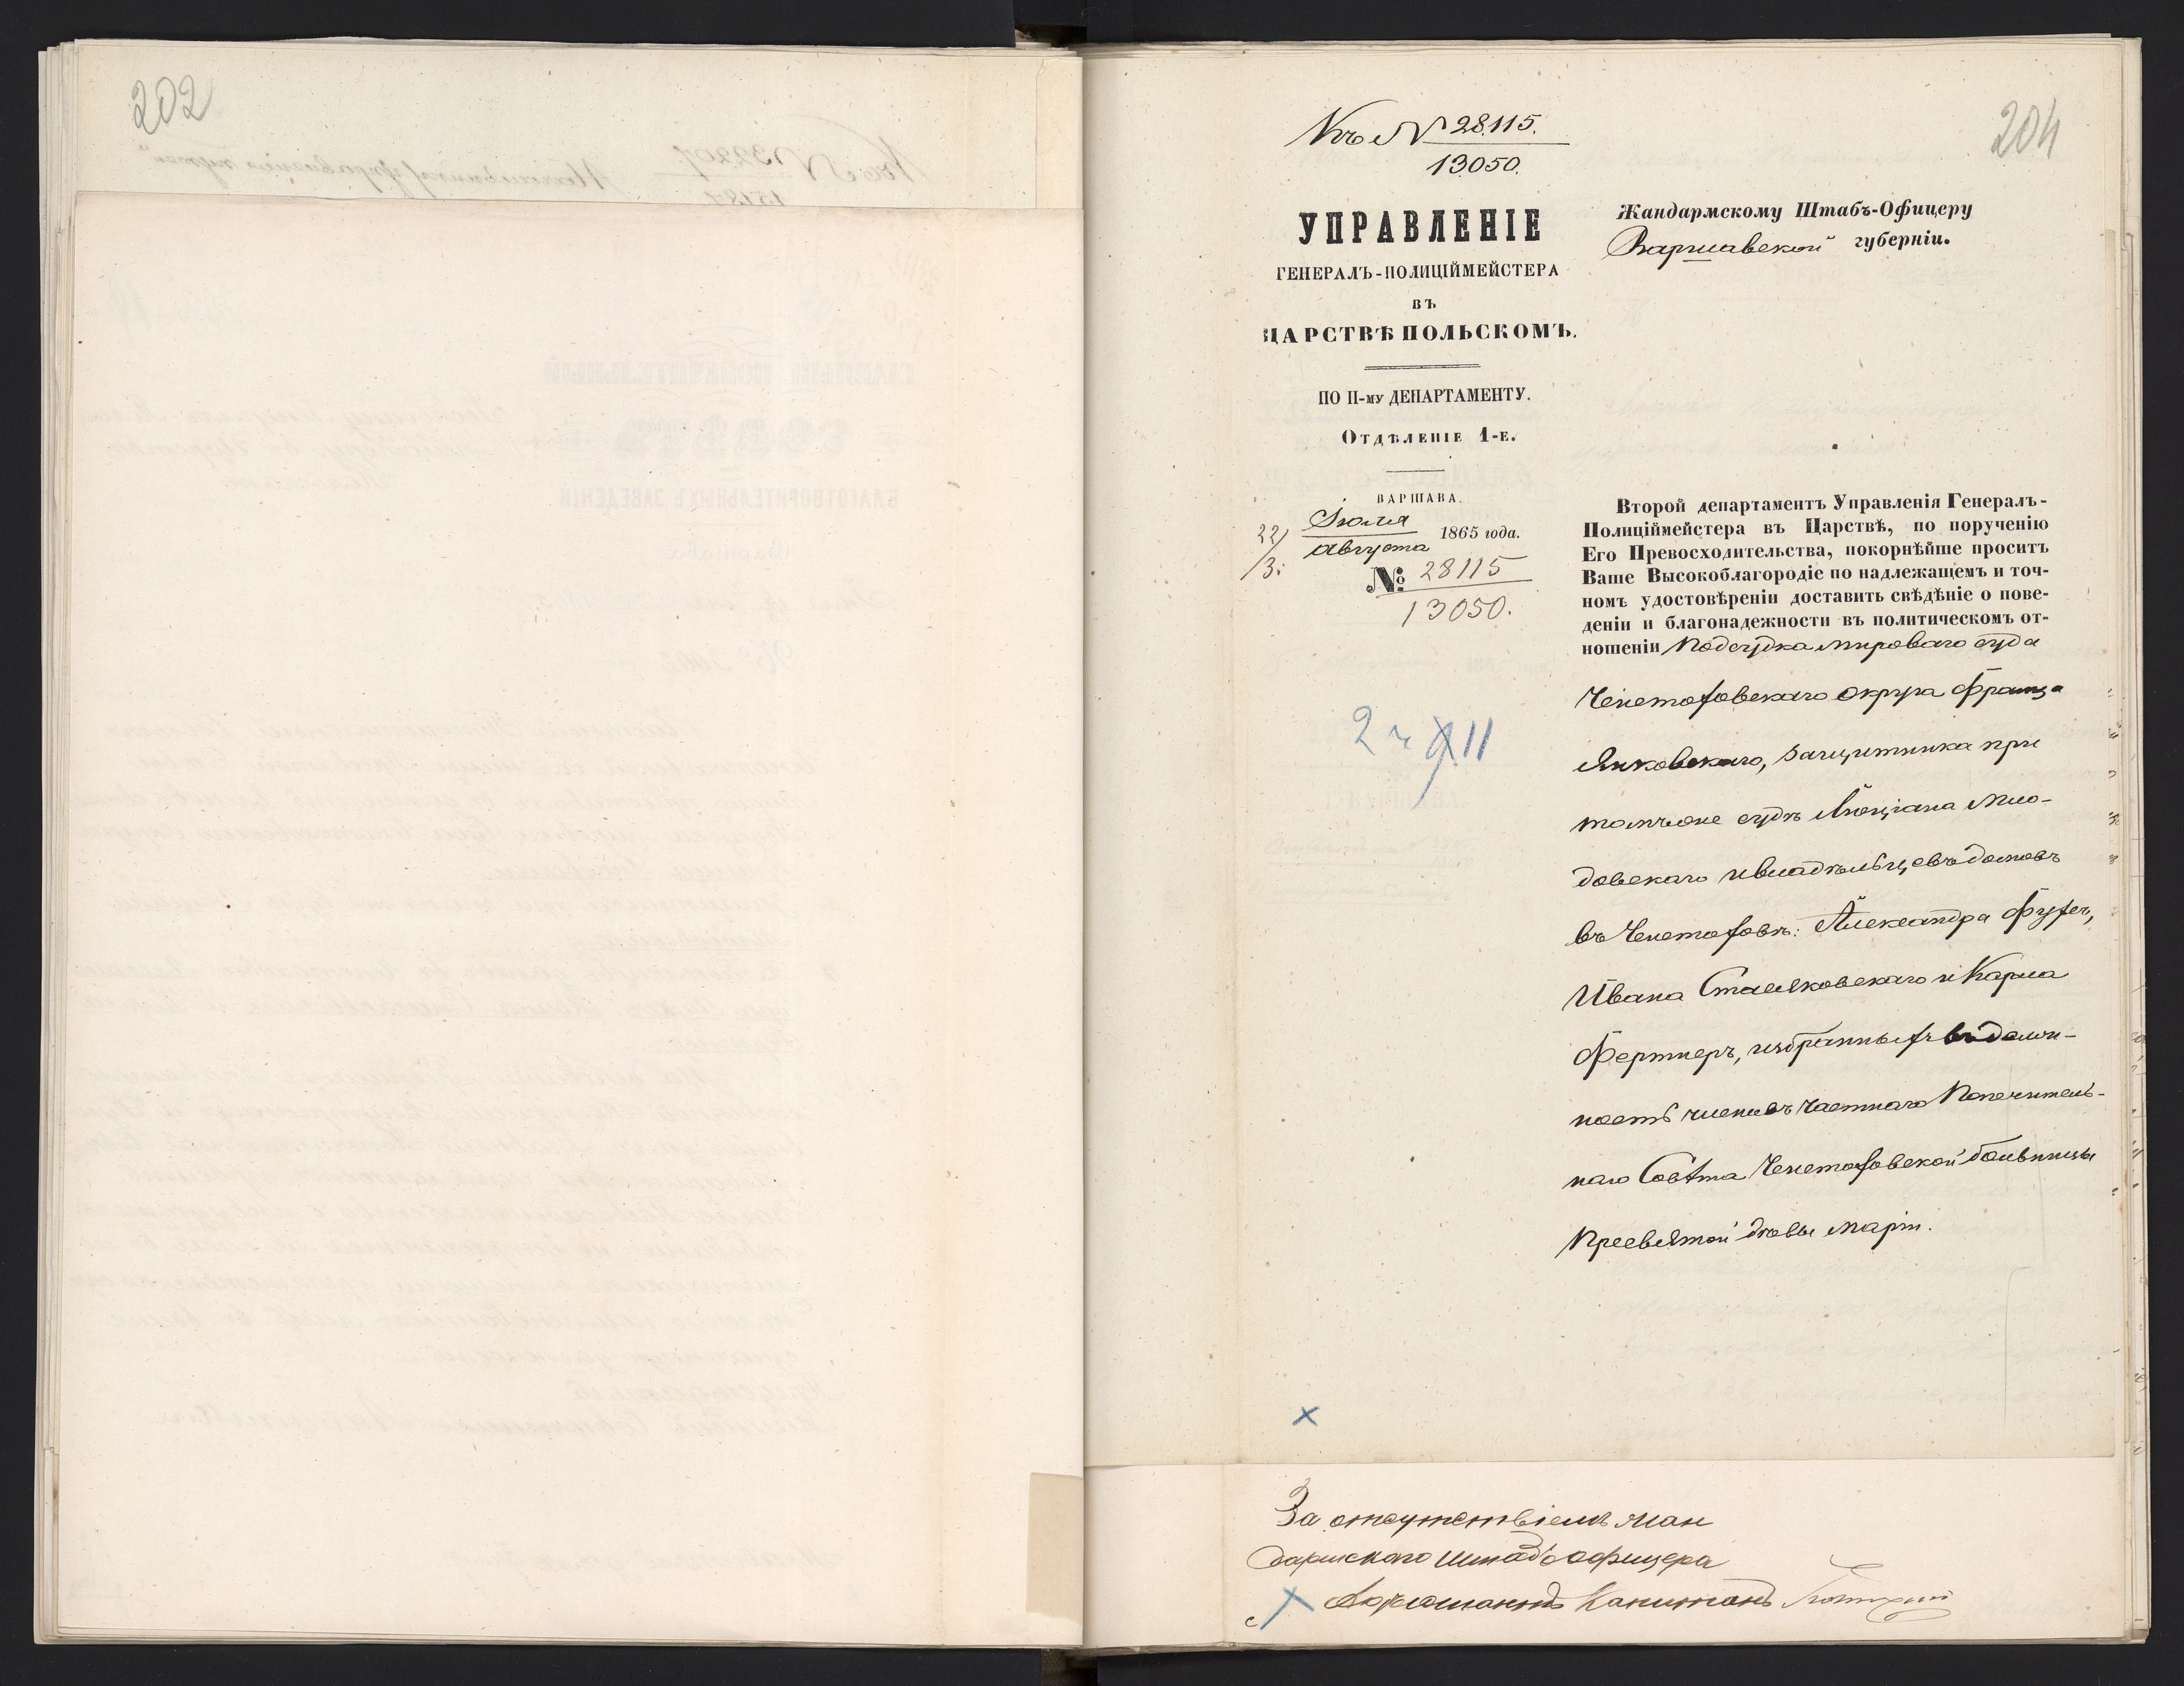 202
204
Къ № 28115.
13050.
УПРАВЛЕНІЕ
ГЕНЕРАЛЪ-ПОЛИЦІЙМЕЙСТЕРА
ВЪ
ЦАРСТВѢ ПОЛЬСКОМЪ.
ПО II-му ДЕПАРТАМЕНТУ.
Отдѣленіе 1-е.
ВАРШАВА.
22/3. Іюля
Августа 1865 года.
№ 28115
13050.
Жандармскому Штабъ-Офицеру
Варшавской губерніи.
Второй департаментъ Управленія Генералъ-
Полиціймейстера въ Царствѣ, по порученію
Его Превосходительства, покорнѣйше проситъ
Ваше Высокоблагородіе по надлежащемъ и точ-
номъ удостовѣреніи доставить свѣдѣніе о пове-
деніи и благонадежности въ политическомъ от-
ношеніи Подсудка мироваго суда
Ченстоховскаго округа Франца
Янковскаго, защитника при
томъ же судѣ Люціана Мио-
довскаго и владѣльцевъ домовъ
въ Ченстоховѣ: Александра
Ивана Стасяковскаго и Карла
Фертнеръ, избранныхъ въ долж-
ность членовъ Частнаго Попечитель-
наго Совѣта Ченстоховской больницы
Пресвятой дѣвы Маріи.
За отсутствіемъ Жан
дармскаго Штабъ Офицера
Адъютантъ Капитанъ